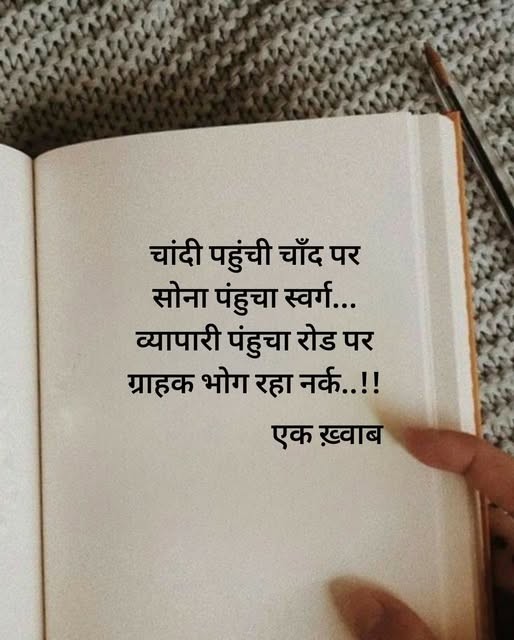 चांदी पहुंची चाँद पर
सोना पंहुचा स्वर्ग...
व्यापारी पंहुचा रोड पर
ग्राहक भोग रहा नर्क..!!
एक ख़्वाब